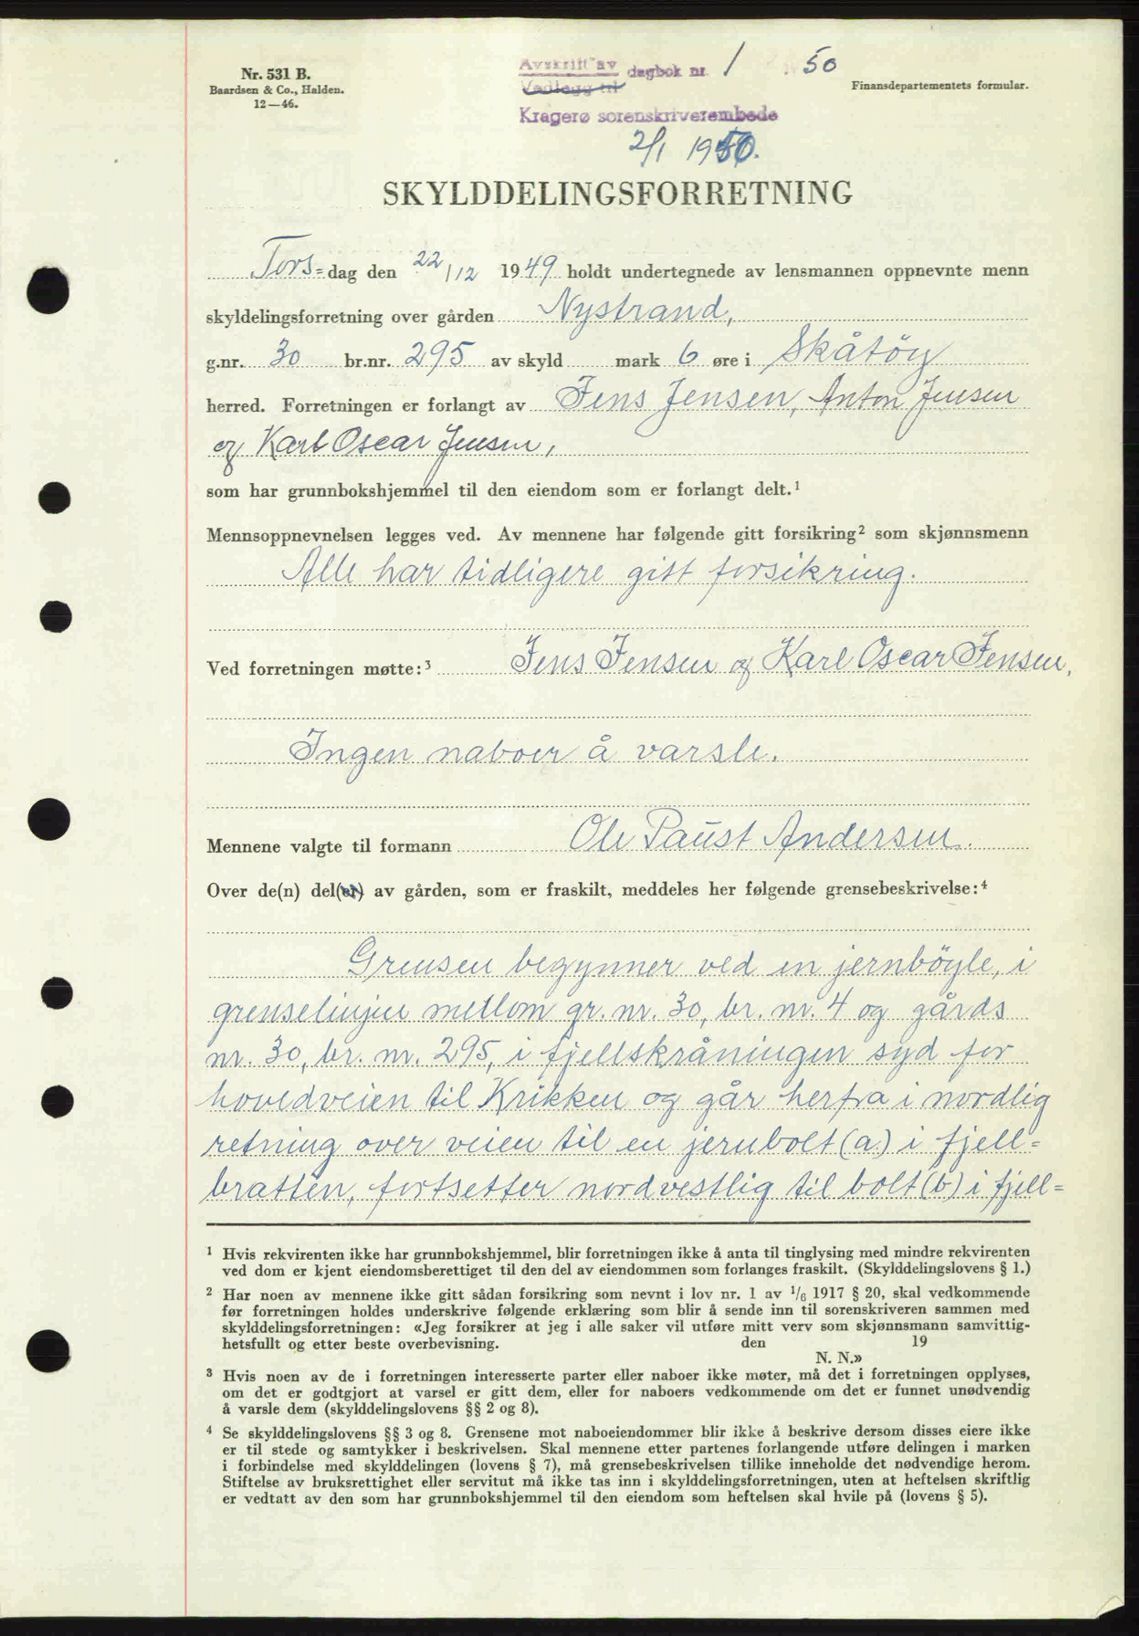 Nr. 531 B.
Baardsen & Co., Halden.
12—46.
Avskrift av
Vedlegg til
dagbok nr. 1 1950
Kragerø sorenskriverembede
2/1 1950.
Finansdepartementets formular.
SKYLDDELINGSFORRETNING
Tors=dag den 22/12 1949 holdt undertegnede av lensmannen oppnevnte menn
skyldelingsforretning over gården Nystrand,
g.nr. 30 br.nr. 295 av skyld mark 6 øre i Skåtöy
herred. Forretningen er forlangt av Jens Jensen, Anton Jensen
og Karl Oscar Jensen,
som har grunnbokshjemmel til den eiendom som er forlangt delt.¹
Mennsoppnevnelsen legges ved. Av mennene har følgende gitt forsikring² som skjønnsmenn
Alle har tidligere gitt forsikring.
Ved forretningen møtte:³ Jens Jensen og Karl Oscar Jensen,
Ingen naboer å varsle.
Mennene valgte til formann Ole Paust Andersen.
Over de(n) del(er) av gården, som er fraskilt, meddeles her følgende grensebeskrivelse:⁴
Grensen begynner ved en jernböyle, i
grenselinjen mellom gr. nr. 30, br. nr. 4 og gårds
nr. 30, br. nr. 295, i fjellskråningen syd for
hovedveien til Krikken og går herfra i nordlig
retning over veien til en jernbolt (a.) i fjell=
bratten, fortsetter nordvestlig til bolt (b) i fjell=
¹ Hvis rekvirenten ikke har grunnbokshjemmel, blir forretningen ikke å anta til tinglysing med mindre rekvirenten
ved dom er kjent eiendomsberettiget til den del av eiendommen som forlanges fraskilt. (Skylddelingslovens § 1.)
² Har noen av mennene ikke gitt sådan forsikring som nevnt i lov nr. 1 av 1/6 1917 § 20, skal vedkommende
før forretningen holdes underskrive følgende erklæring som blir å sende inn til sorenskriveren sammen med
skylddelingsforretningen: «Jeg forsikrer at jeg i alle saker vil utføre mitt verv som skjønnsmann samvittig-
hetsfullt og etter beste overbevisning. den 19
N. N.»
³ Hvis noen av de i forretningen interesserte parter eller naboer ikke møter, må det i forretningen opplyses,
om det er godtgjort at varsel er gitt dem, eller for naboers vedkommende om det er funnet unødvendig
å varsle dem (skylddelingslovens §§ 2 og 8).
⁴ Se skylddelingslovens §§ 3 og 8. Grensene mot naboeiendommer blir ikke å beskrive dersom disses eiere ikke
er til stede og samtykker i beskrivelsen. Skal mennene etter partenes forlangende utføre delingen i marken
i forbindelse med skylddelingen (lovens § 7), må grensebeskrivelsen tillike inneholde det nødvendige herom.
Stiftelse av bruksrettighet eller servitut må ikke tas inn i skylddelingsforretningen, uten at heftelsen skriftlig
er vedtatt av den som har grunnbokshjemmel til den eiendom som heftelsen skal hvile på (lovens § 5).